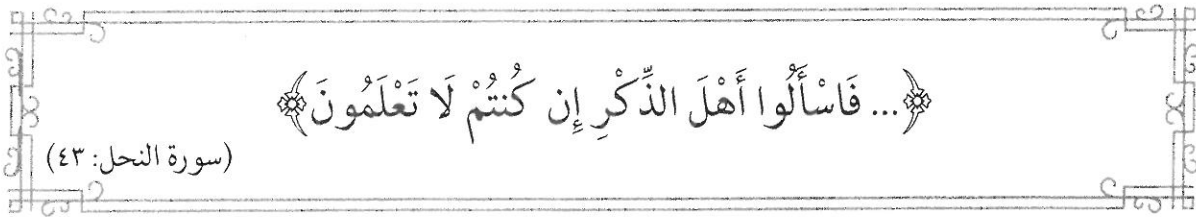 ﴿... فَاسْأَلُوا أَهْلَ الذِّكْرِ إِن كُنتُمْ لَا تَعْلَمُونَ﴾
(سورة النحل: ٤٣)